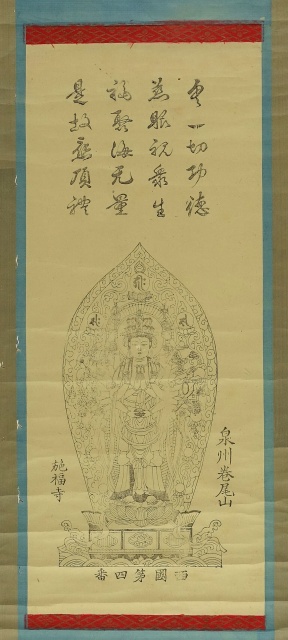 具一切功徳
慈眼視衆生
福聚海无量
是故應頂禮
泉州巻尾山
施福寺
西國第四番